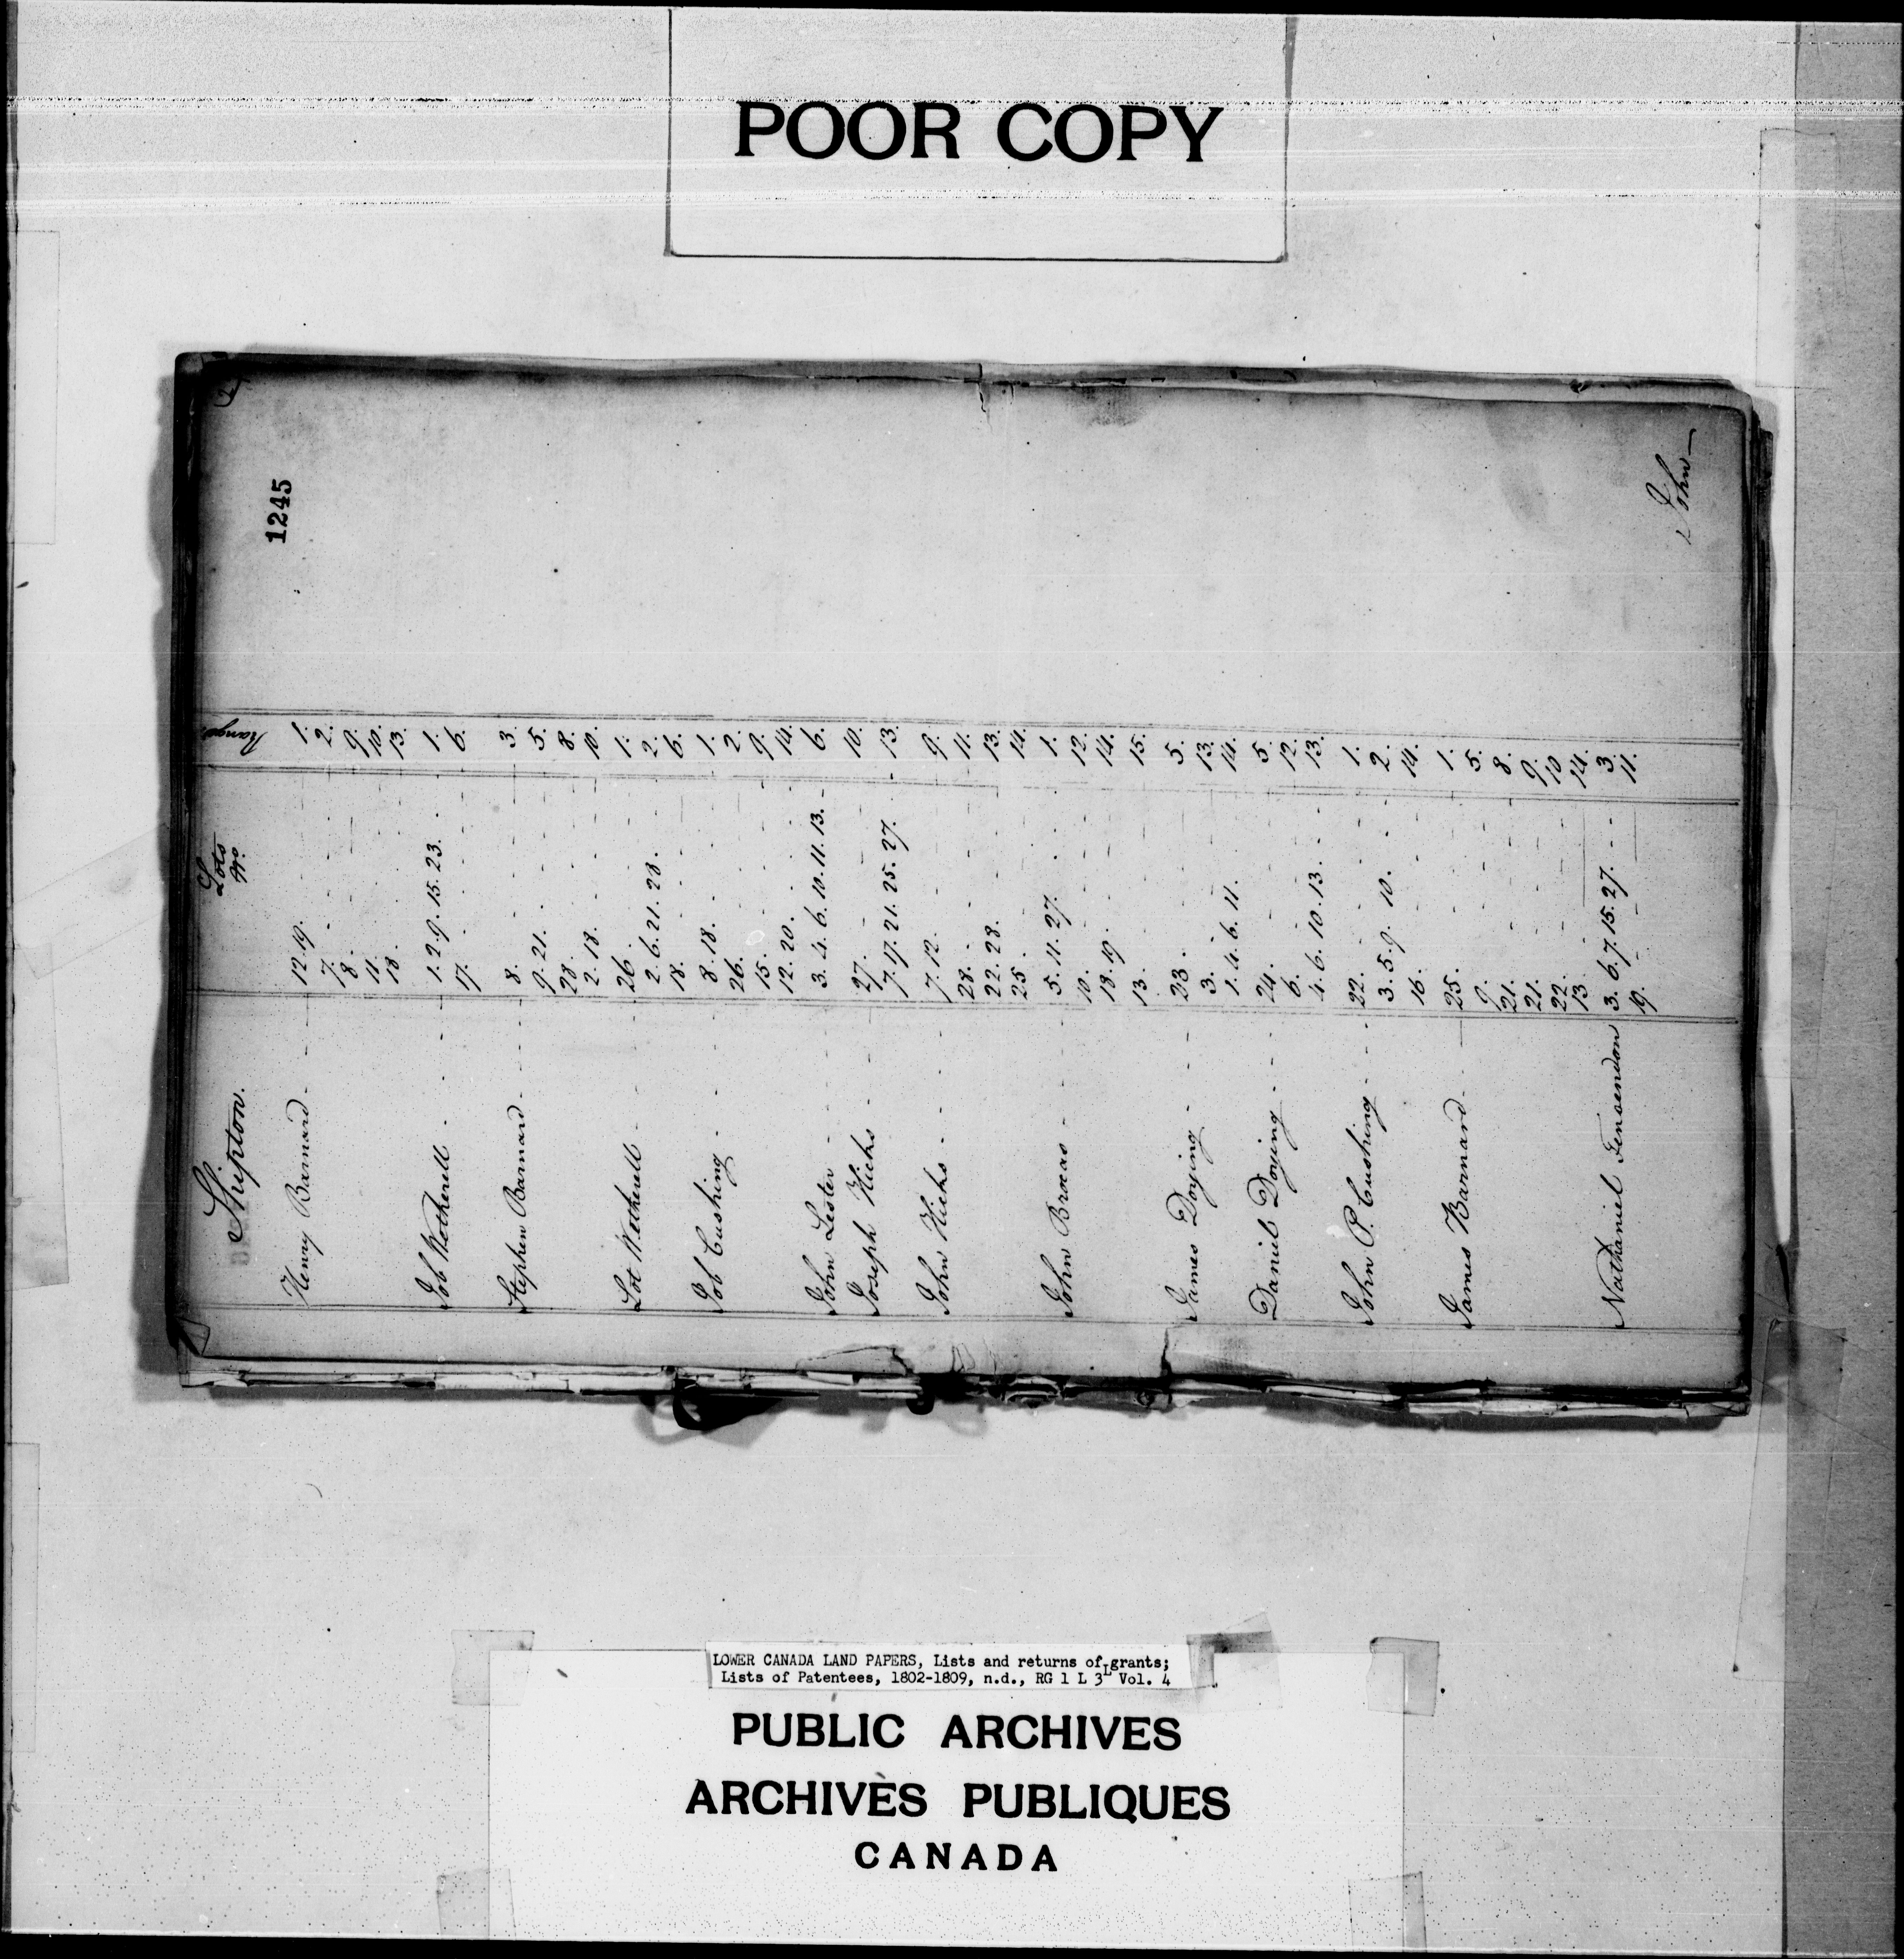 POOR COPY
1245
Shipton.
Lots
No.
Range
Henry Barnard - - - 12. 19. - - - 1.
7. - - - 2.
8. - - - 9.
11. - - - 10.
18. - - - 13.
Job Wetherell - - - 1. 2. 9. 15. 23. - 1.
17. - - - 6.
Stephen Barnard - - - 8. - - - 3.
9. 21. - - - 5.
28. - - - 8.
2. 18. - - - 10.
Lot Wetherell - - - 26. - - - 1.
2. 6. 21. 28. - - 2.
18. - - - 6.
Job Cushing - - - 8. 18. - - - 1.
26. - - - 2.
15. - - - 9.
12. 20. - - - 14.
John Lester - - - 3. 4. 6. 10. 11. 13. - 6.
Joseph Hicks - - - 27. - - - 10.
7. 17. 21. 25. 27. - 13.
John Hicks - - - 7. 12. - - - 9.
28. - - - 11.
22. 28. - - - 13.
25. - - - 14.
John Brocas - - - 5. 11. 27. - - - 1.
10. - - - 12.
18. 19. - - - 14.
13. - - - 15.
James Doying - - - 23. - - - 5.
3. - - - 13.
1. 4. 6. 11. - - - 14.
Daniel Doying - - - 24. - - - 5.
6. - - - 12.
4. 6. 10. 13. - - - 13.
John P. Cushing - - - 22. - - - 1.
3. 5. 9. 10. - - - 2.
16. - - - 14.
James Barnard - - - 25. - - - 1.
9. - - - 5.
21. - - - 8.
21. - - - 9.
22. - - - 10.
13. - - - 14.
Nathaniel 3. 6. 7. 15. 27. - - 3.
19. - - - 11.
John -
LOWER CANADA LAND PAPERS, Lists and returns of grants;
Lists of Patentees, 1802-1809, n.d., RG 1 L 3L Vol. 4
PUBLIC ARCHIVES
ARCHIVES PUBLIQUES
CANADA